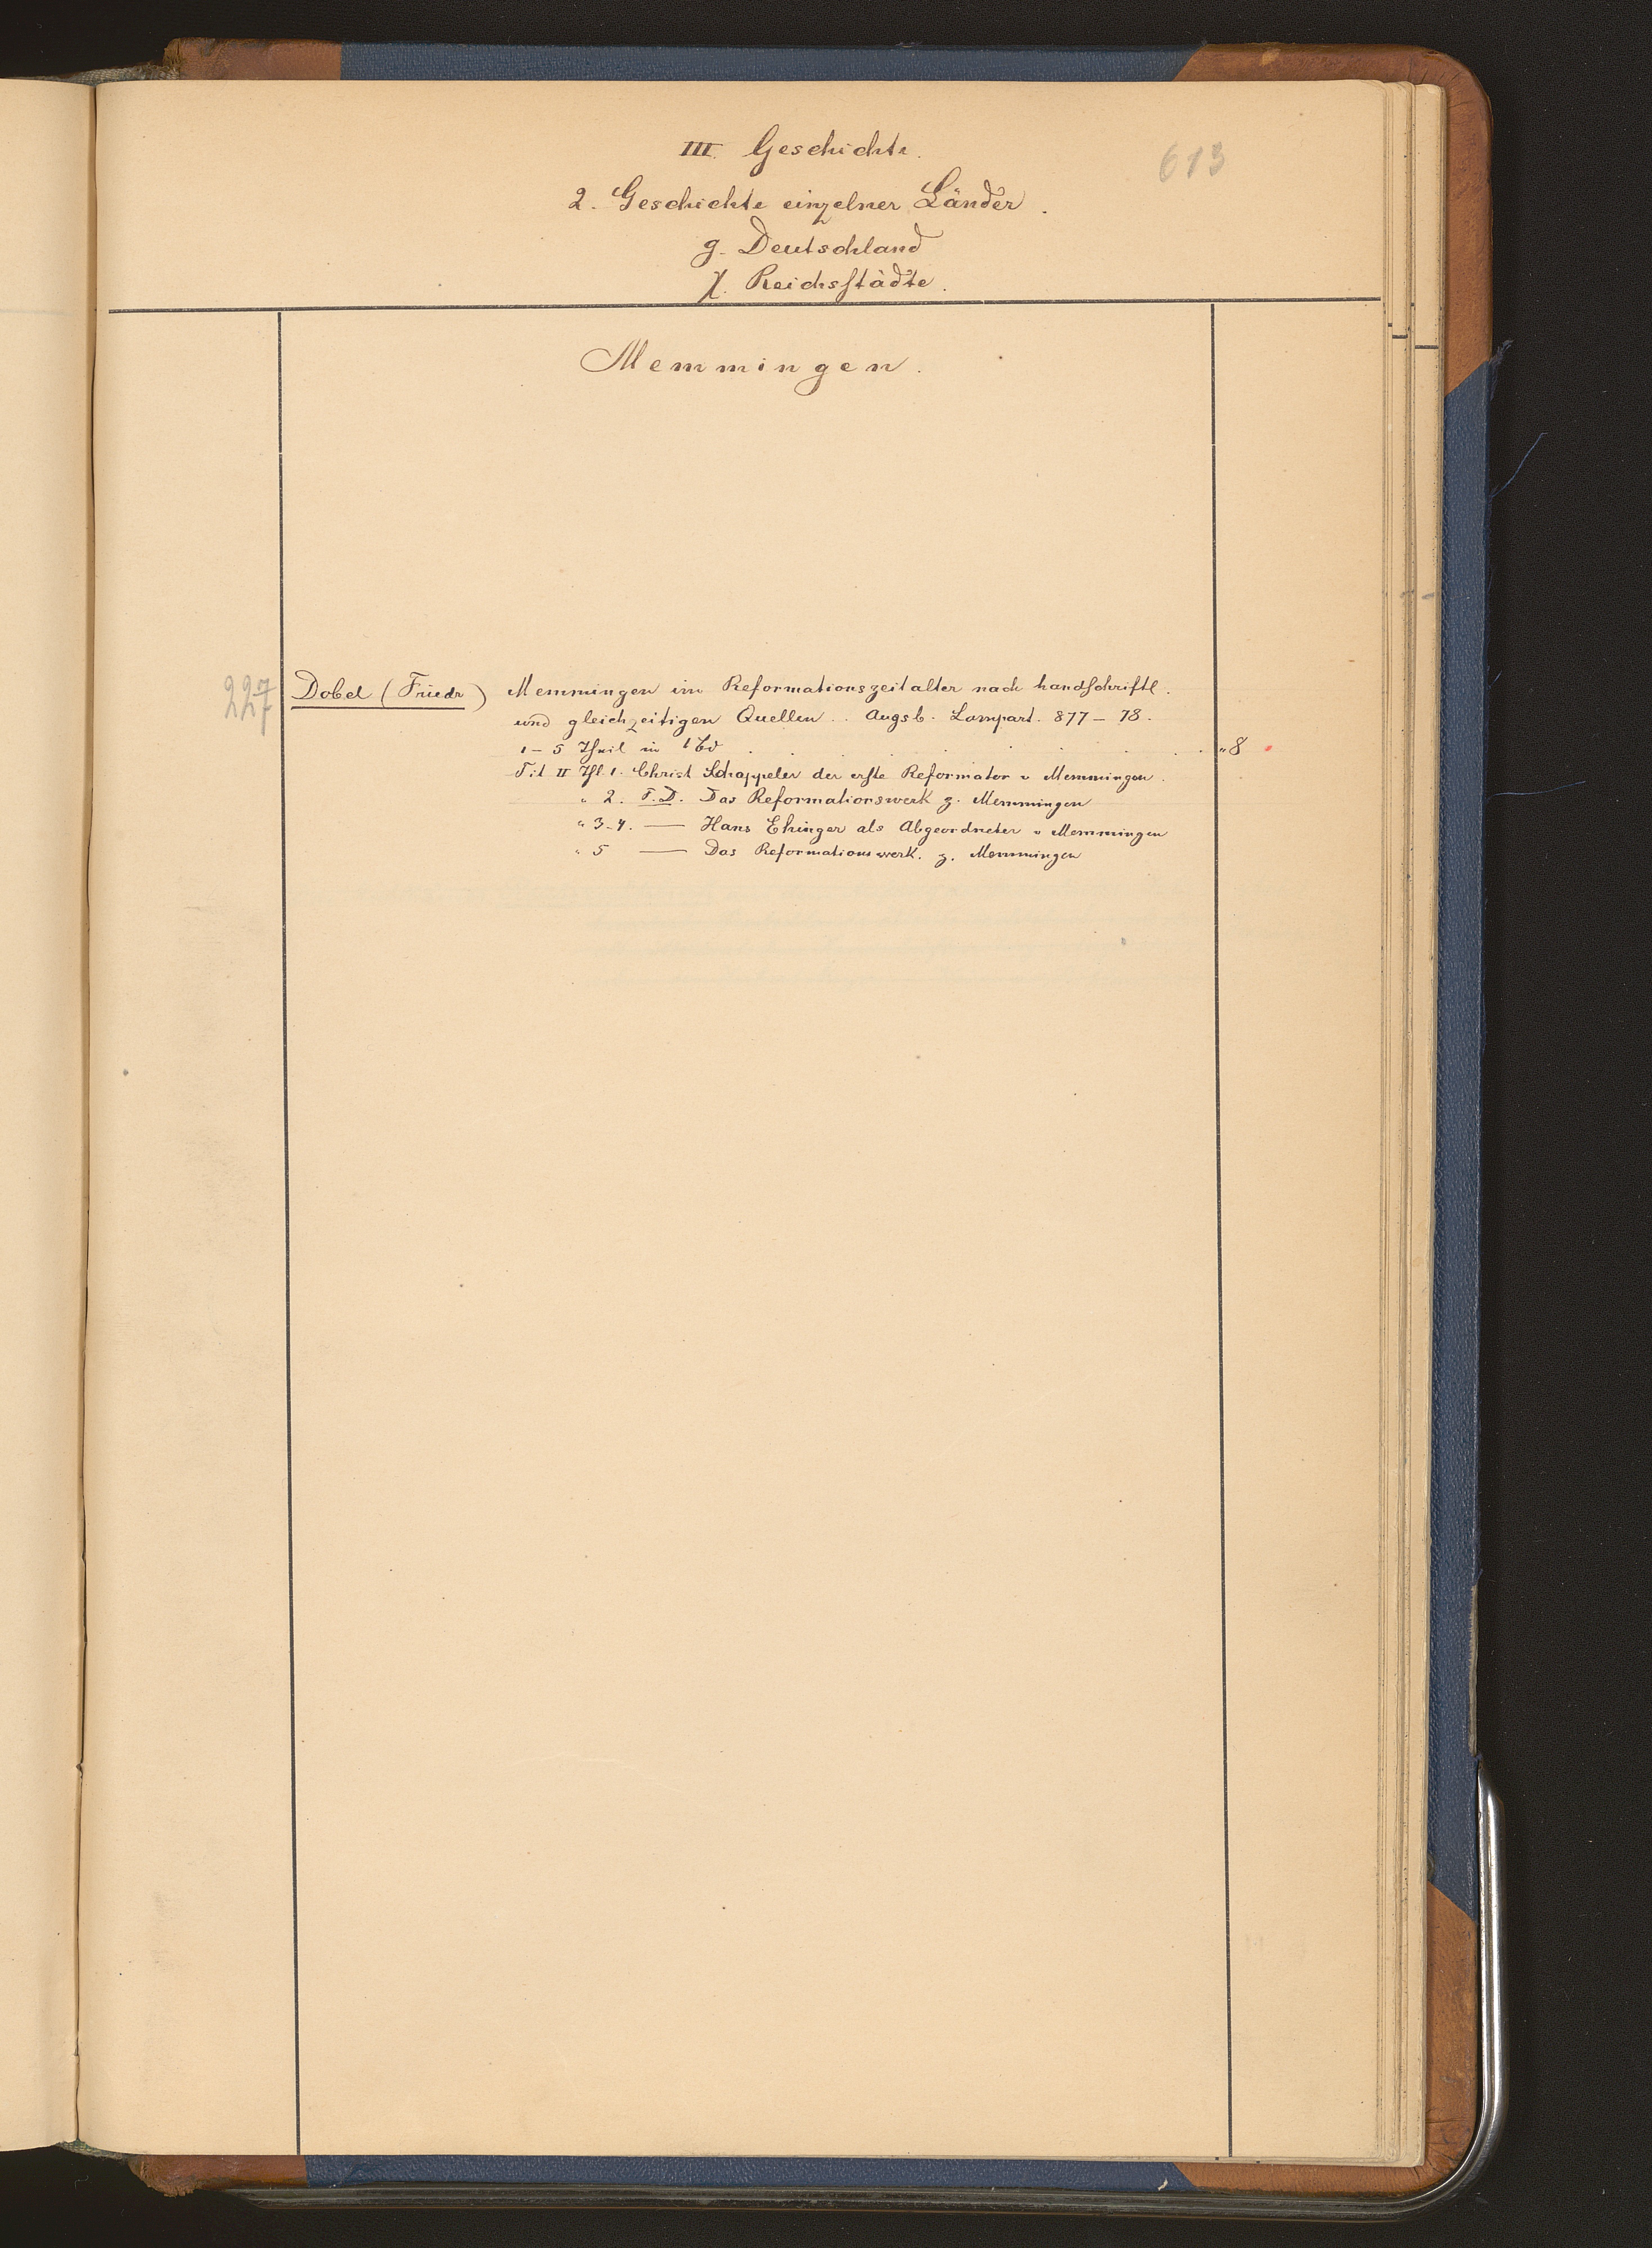 613
III. Geschichte.
2. Geschichte einzelner Länder.
g. Deutschland
χ. Reichsstädte.
Memmingen.
227 Dobel (Friedr) Memmingen im Reformationszeitalter nach handschriftl.
und gleichzeitigen Quellen. . Augsb. Lampart. 877–78.
1–5 Theil in 1 Bd . . . . . . . . . . „ 8
Tit II Thl. 1. Christ Schappeler der erste Reformator v Memmingen.
„ 2. F. D. Das Reformationswerk z. Memmingen
„ 3–4. — Hans Ehinger als Abgeordneter v Memmingen
„ 5 — Das Reformationswerk. z. Memmingen